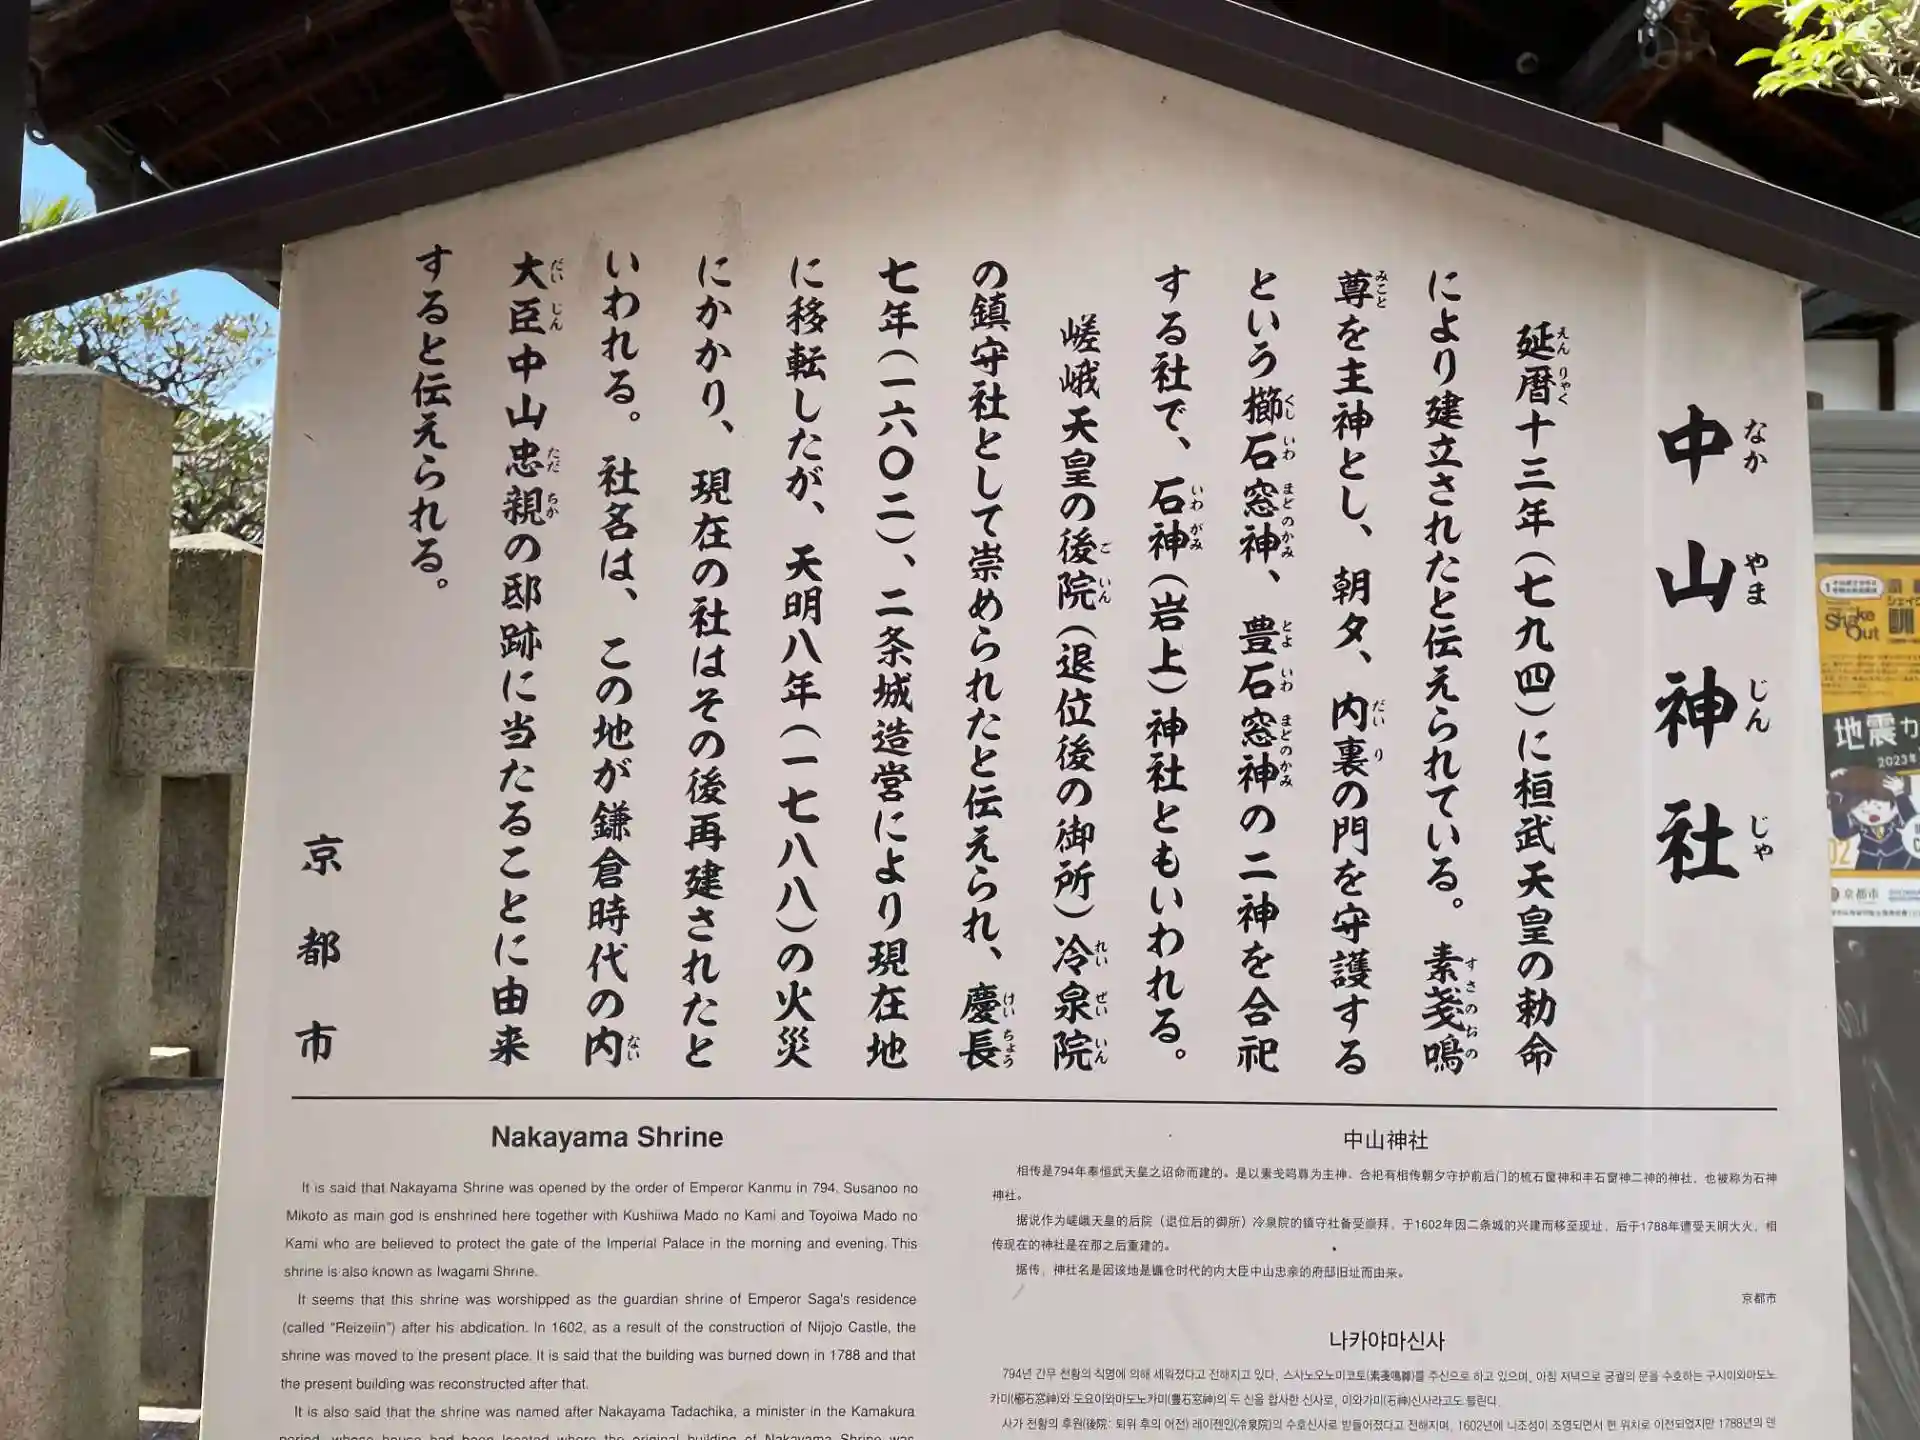 中山神社
なか やま じん じゃ
延暦十三年(七九四)に桓武天皇の勅命
により建立されたと伝えられている。素戔嗚
尊を主神とし、朝夕、内裏の門を守護する
という櫛石窓神、豊石窓神の二神を合祀
する社で、石神(岩上)神社ともいわれる。
嵯峨天皇の後院(退位後の御所)冷泉院
の鎮守社として崇められたと伝えられ、慶長
七年(一六〇二)、二条城造営により現在地
に移転したが、天明八年(一七八八)の火災
にかかり、現在の社はその後再建されたと
いわれる。社名は、この地が鎌倉時代の内
大臣中山忠親の邸跡に当たることに由来
すると伝えられる。
京都市
Nakayama Shrine
It is said that Nakayama Shrine was opened by the order of Emperor Kanmu in 794. Susanoo no
Mikoto as main god is enshrined here together with Kushiiwa Mado no Kami and Toyoiwa Mado no
Kami who are believed to protect the gate of the Imperial Palace in the morning and evening. This
shrine is also known as Iwagami Shrine.
It seems that this shrine was worshipped as the guardian shrine of Emperor Saga's residence
(called "Reizeiin") after his abdication. In 1602, as a result of the construction of Nijojo Castle, the
shrine was moved to the present place. It is said that the building was burned down in 1788 and that
the present building was reconstructed after that.
It is also said that the shrine was named after Nakayama Tadachika, a minister in the Kamakura
period, whose house had been located where the original building of Nakayama Shrine was
中山神社
相传是794年奉恒武天皇之诏命而建的。是以素戋鸣尊为主神、合祀有相传朝夕守护前后门的梳石窗神和丰石窗神二神的神社，也被称为石神
神社。
据说作为嵯峨天皇的后院（退位后的御所）冷泉院的镇守社备受崇拜，于1602年因二条城的兴建而移至现址，后于1788年遭受天明大火，相
传现在的神社是在那之后重建的。
据传，神社名是因该地是镰仓时代的内大臣中山忠亲的府邸旧址而由来。
京都市
나카야마신사
794년 간무 천황의 칙명에 의해 세워졌다고 전해지고 있다. 스사노오노미코토(素戔嗚尊)를 주신으로 하고 있으며, 아침 저녁으로 궁궐의 문을 수호하는 구시이와마도노
카미(櫛石窓神)와 도요이와마도노카미(豊石窓神)의 두 신을 합사한 신사로, 이와가미(石神)신사라고도 불린다.
사가 천황의 후원(後院: 퇴위 후의 어전) 레이젠인(冷泉院)의 수호신사로 받들어졌다고 전해지며, 1602년에 니조성이 조영되면서 현 위치로 이전되었지만 1788년의 덴
Shake
Out
地震
2023年
京都市